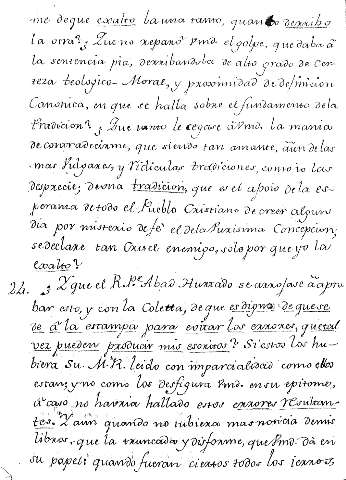 me de que exalto la una tanto, quanto derribo
la otra? ¿Que no reparò Pmd. el golpe, que daba à
la sentencia pia, derribandola de alto grado de Cer
teza Teologico-Moral, y proximidad de definicion
Canonica, en que se halla sobre el fundamento de la
tradicion? ¿Que tanto le cegase à Vmd. la mania
de contradecirme, que siendo tan amante, aun de las
mas Vulgares, y ridiculas tradiciones, como yo las
desprecie; de una tradicion, que es el apoio de la es-
peranza de todo el Pueblo Cristiano de creer algun
dia por misterio de fè el de la Purisima Concepcion,
se declare tan Cruel enemigo, solo por que yo la
exalto?
24. ¿Y que el R. Pe. Abad Hurtado se arrojase à apro
bar esto, y con la Coletta, de que es digno de que se
de à la estampa para evitar los errores, que tal
vez pueden producir mis escritos? Si estos los hu-
biera Su. M. R. leido con imparcialidad como ellos
estan; y no como los desfigura Vmd. en su epitome,
àcaso no havria hallado estos errores resultan-
tes. Y aun quando no tubiera mas noticia de mis
libros, que la truncada y disforme, que Vmd. dà en
su papel; quando fueran ciertos todos los ierros,